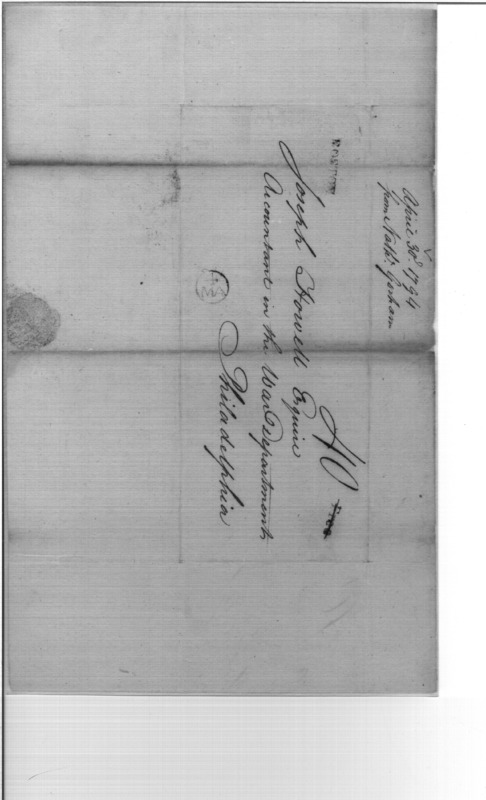 April 30th. 1794
from Nathl. Gorham
BOSTON
Joseph Howell Esquire
Accountant in the War Department
Philadelphia
Free